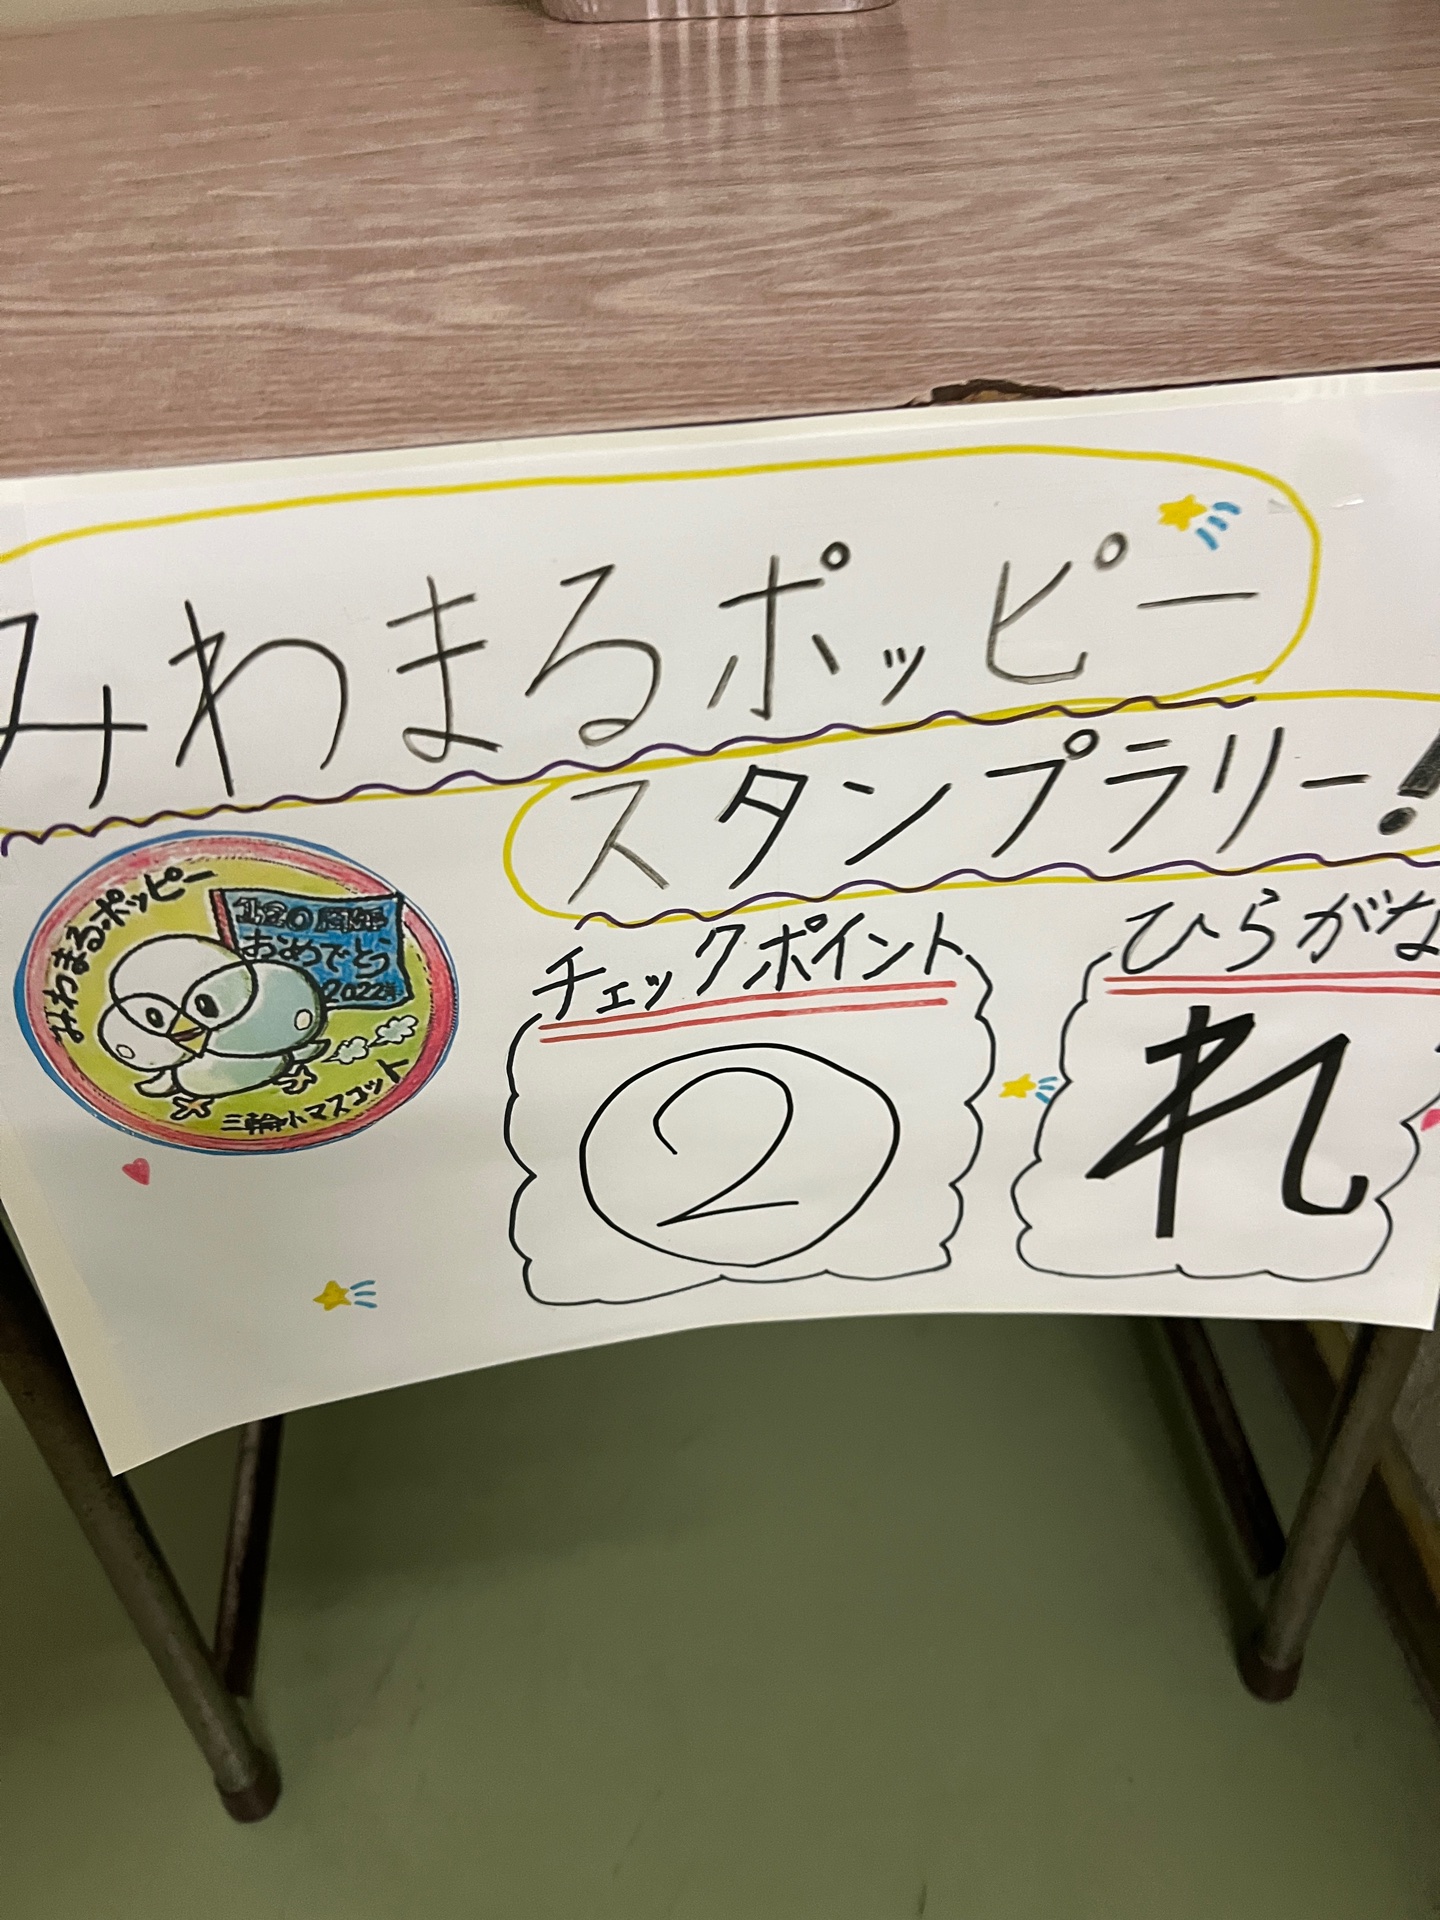 みわまるポッピー
スタンプラリー!
みわまるポッピー
120周年
おめでとう
2022年
三輪小マスコット
チェックポイント
2
ひらがな
れ